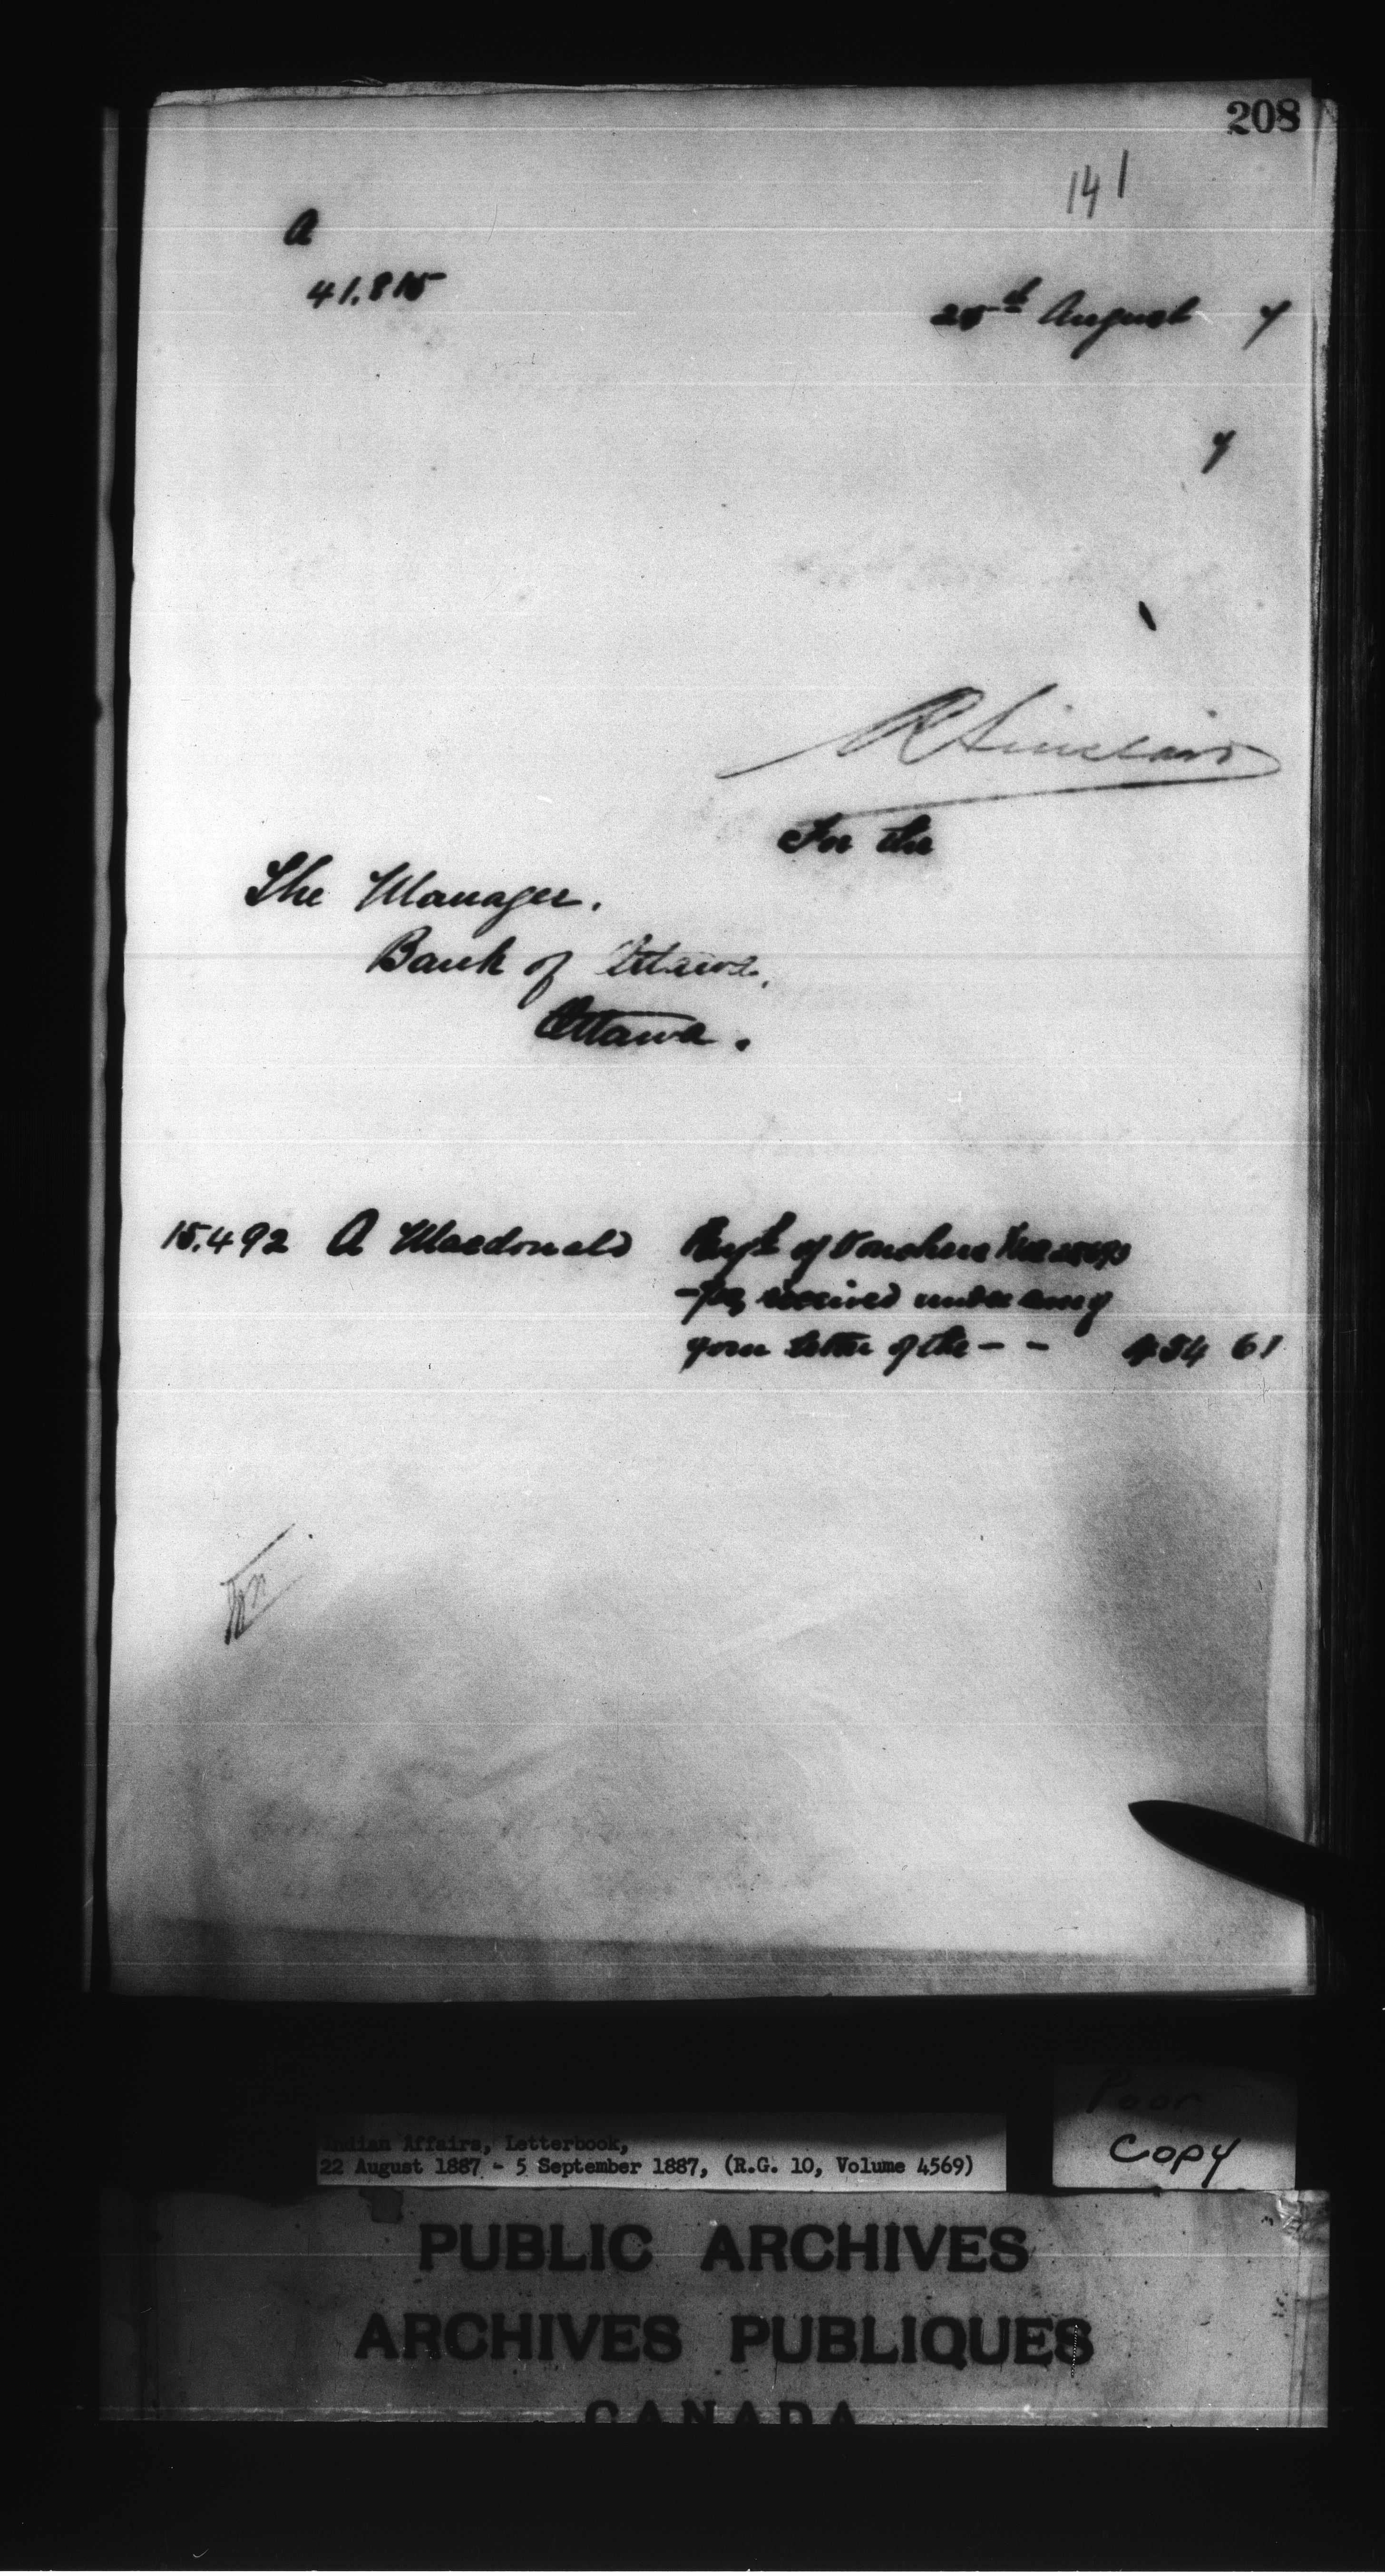 208
141
A
41.815
25th August 7
7
R Sinclair
For the
The Manager.
Bank of Ottawa,
Ottawa.
15.492 A Macdonald Payt of Vouchers
received under
your letter of the - - 434 61
Poor
Copy
Indian Affairs, Letterbook,
22 August 1887 - 5 September 1887, (R.G. 10, Volume 4569)
PUBLIC ARCHIVES
ARCHIVES PUBLIQUES
CANADA